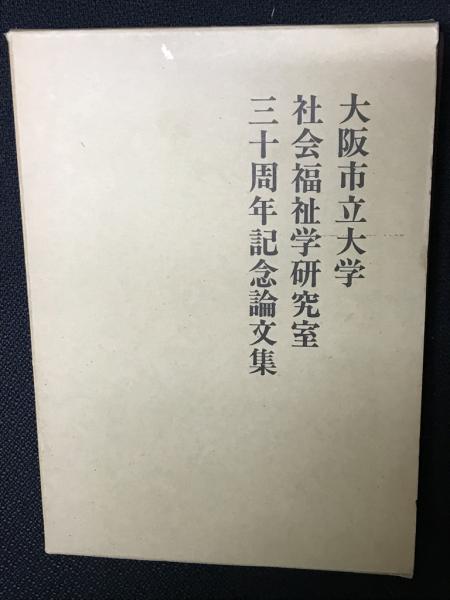 大阪市立大学
社会福祉学研究室
三十周年記念論文集